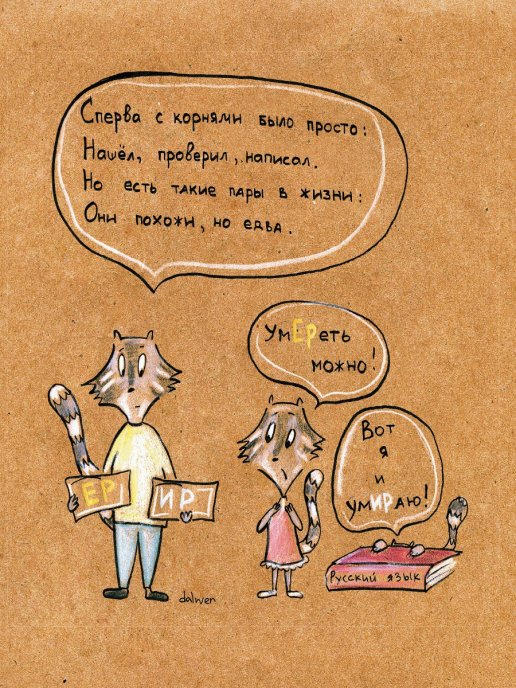 Сперва с корнями было просто:
Нашёл, проверил, написал.
Но есть такие пары в жизни:
Они похожи, но едва.
УмЕРеть
можно!
Вот
я
и
умИРаю!
ЕР
ИР
Русский язык
dalwen